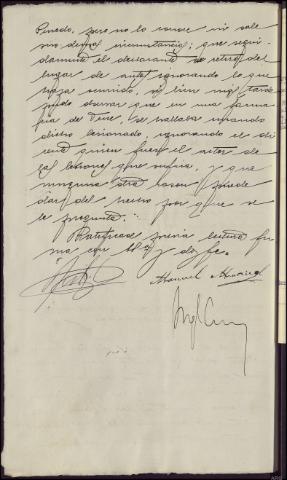 Penedo, pero no lo conoce ni sabe
mo demas circunstancias; que segui-
damente el declarante se retiró del
lugar de autos ignorando lo que
haya ocurrido, si bien mas tarde
pudo observar que en una farma-
cia de Tuy, se hallaba curando
dicho lesionado, ignorando el di-
cente quien fuera el autor de
las lesiones que sufria, y que
ninguna otra razon puede
dar del hecho por que se
le pregunta.
Ratificase previa lectura fir-
ma con S.S. y doy fe.
Manuel